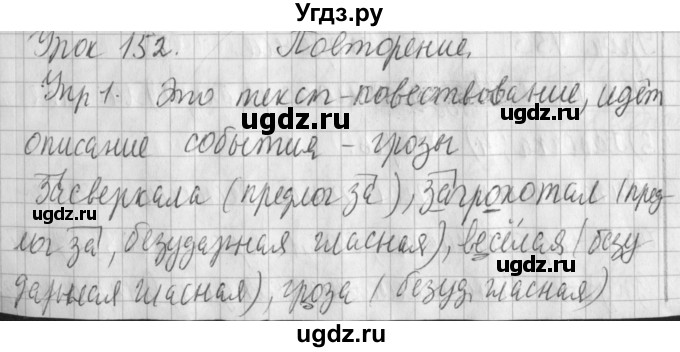 Угдз.ру
Урок 152. Повторение.
Упр 1. Это текст-повествование, идёт
ugdz.ru ugdz.ru
описание события - грозы
Засверкала (предлог за), загрохотал (пред-
лог за, безударная гласная), весёлая (безу
дарная гласная), гроза (безуд. гласная)
ugdz.ru ugdz.ru